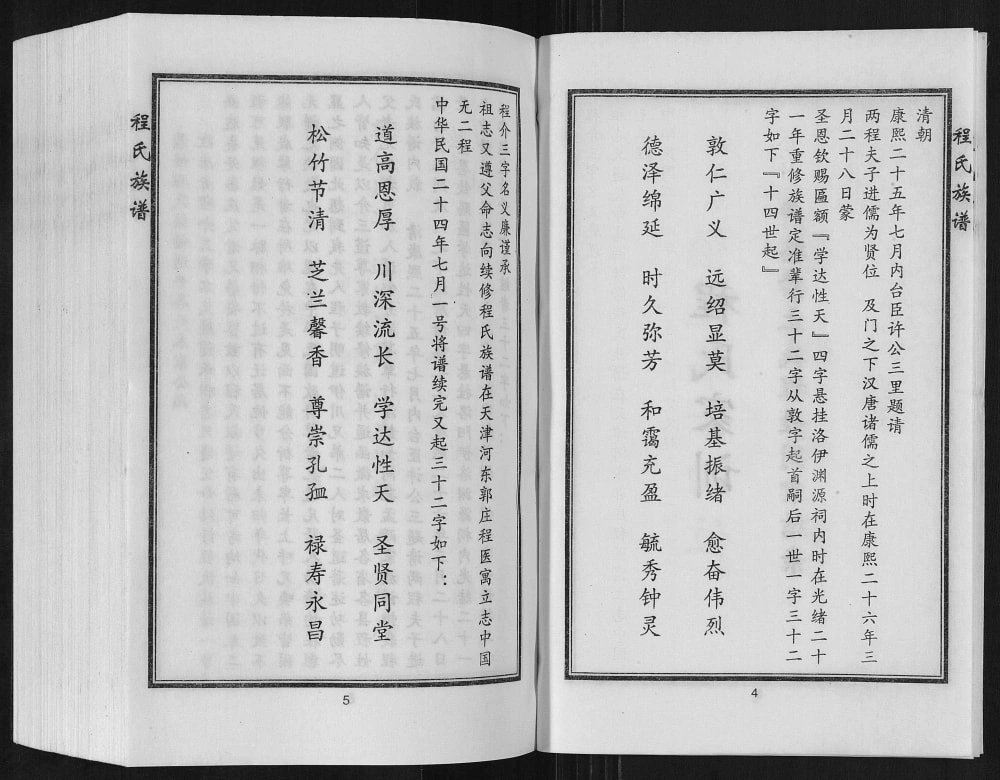 程氏族谱
清朝
康熙二十五年七月内台臣许公三里题请
两程夫子进儒为贤位 及门之下汉唐诸儒之上时在康熙二十六年三
月二十八日蒙
圣恩钦赐匾额『学达性天』四字悬挂洛伊渊源祠内时在光绪二十
一年重修族谱定准辈行三十二字从敦字起首嗣后一世一字三十二
字如下『十四世起』
敦仁广义 远绍显莫 培基振绪 愈奋伟烈
德泽绵延 时久弥芳 和霭充盈 毓秀钟灵
4
程介三字名义廉谨承
祖志又遵父命志向续修程氏族谱在天津河东郭庄程医寓立志中国
无二程
中华民国二十四年七月一号将谱续完又起三十二字如下：
道高恩厚 川深流长 学达性天 圣贤同堂
松竹节清 芝兰馨香 尊崇孔孟 禄寿永昌
程氏族谱
5